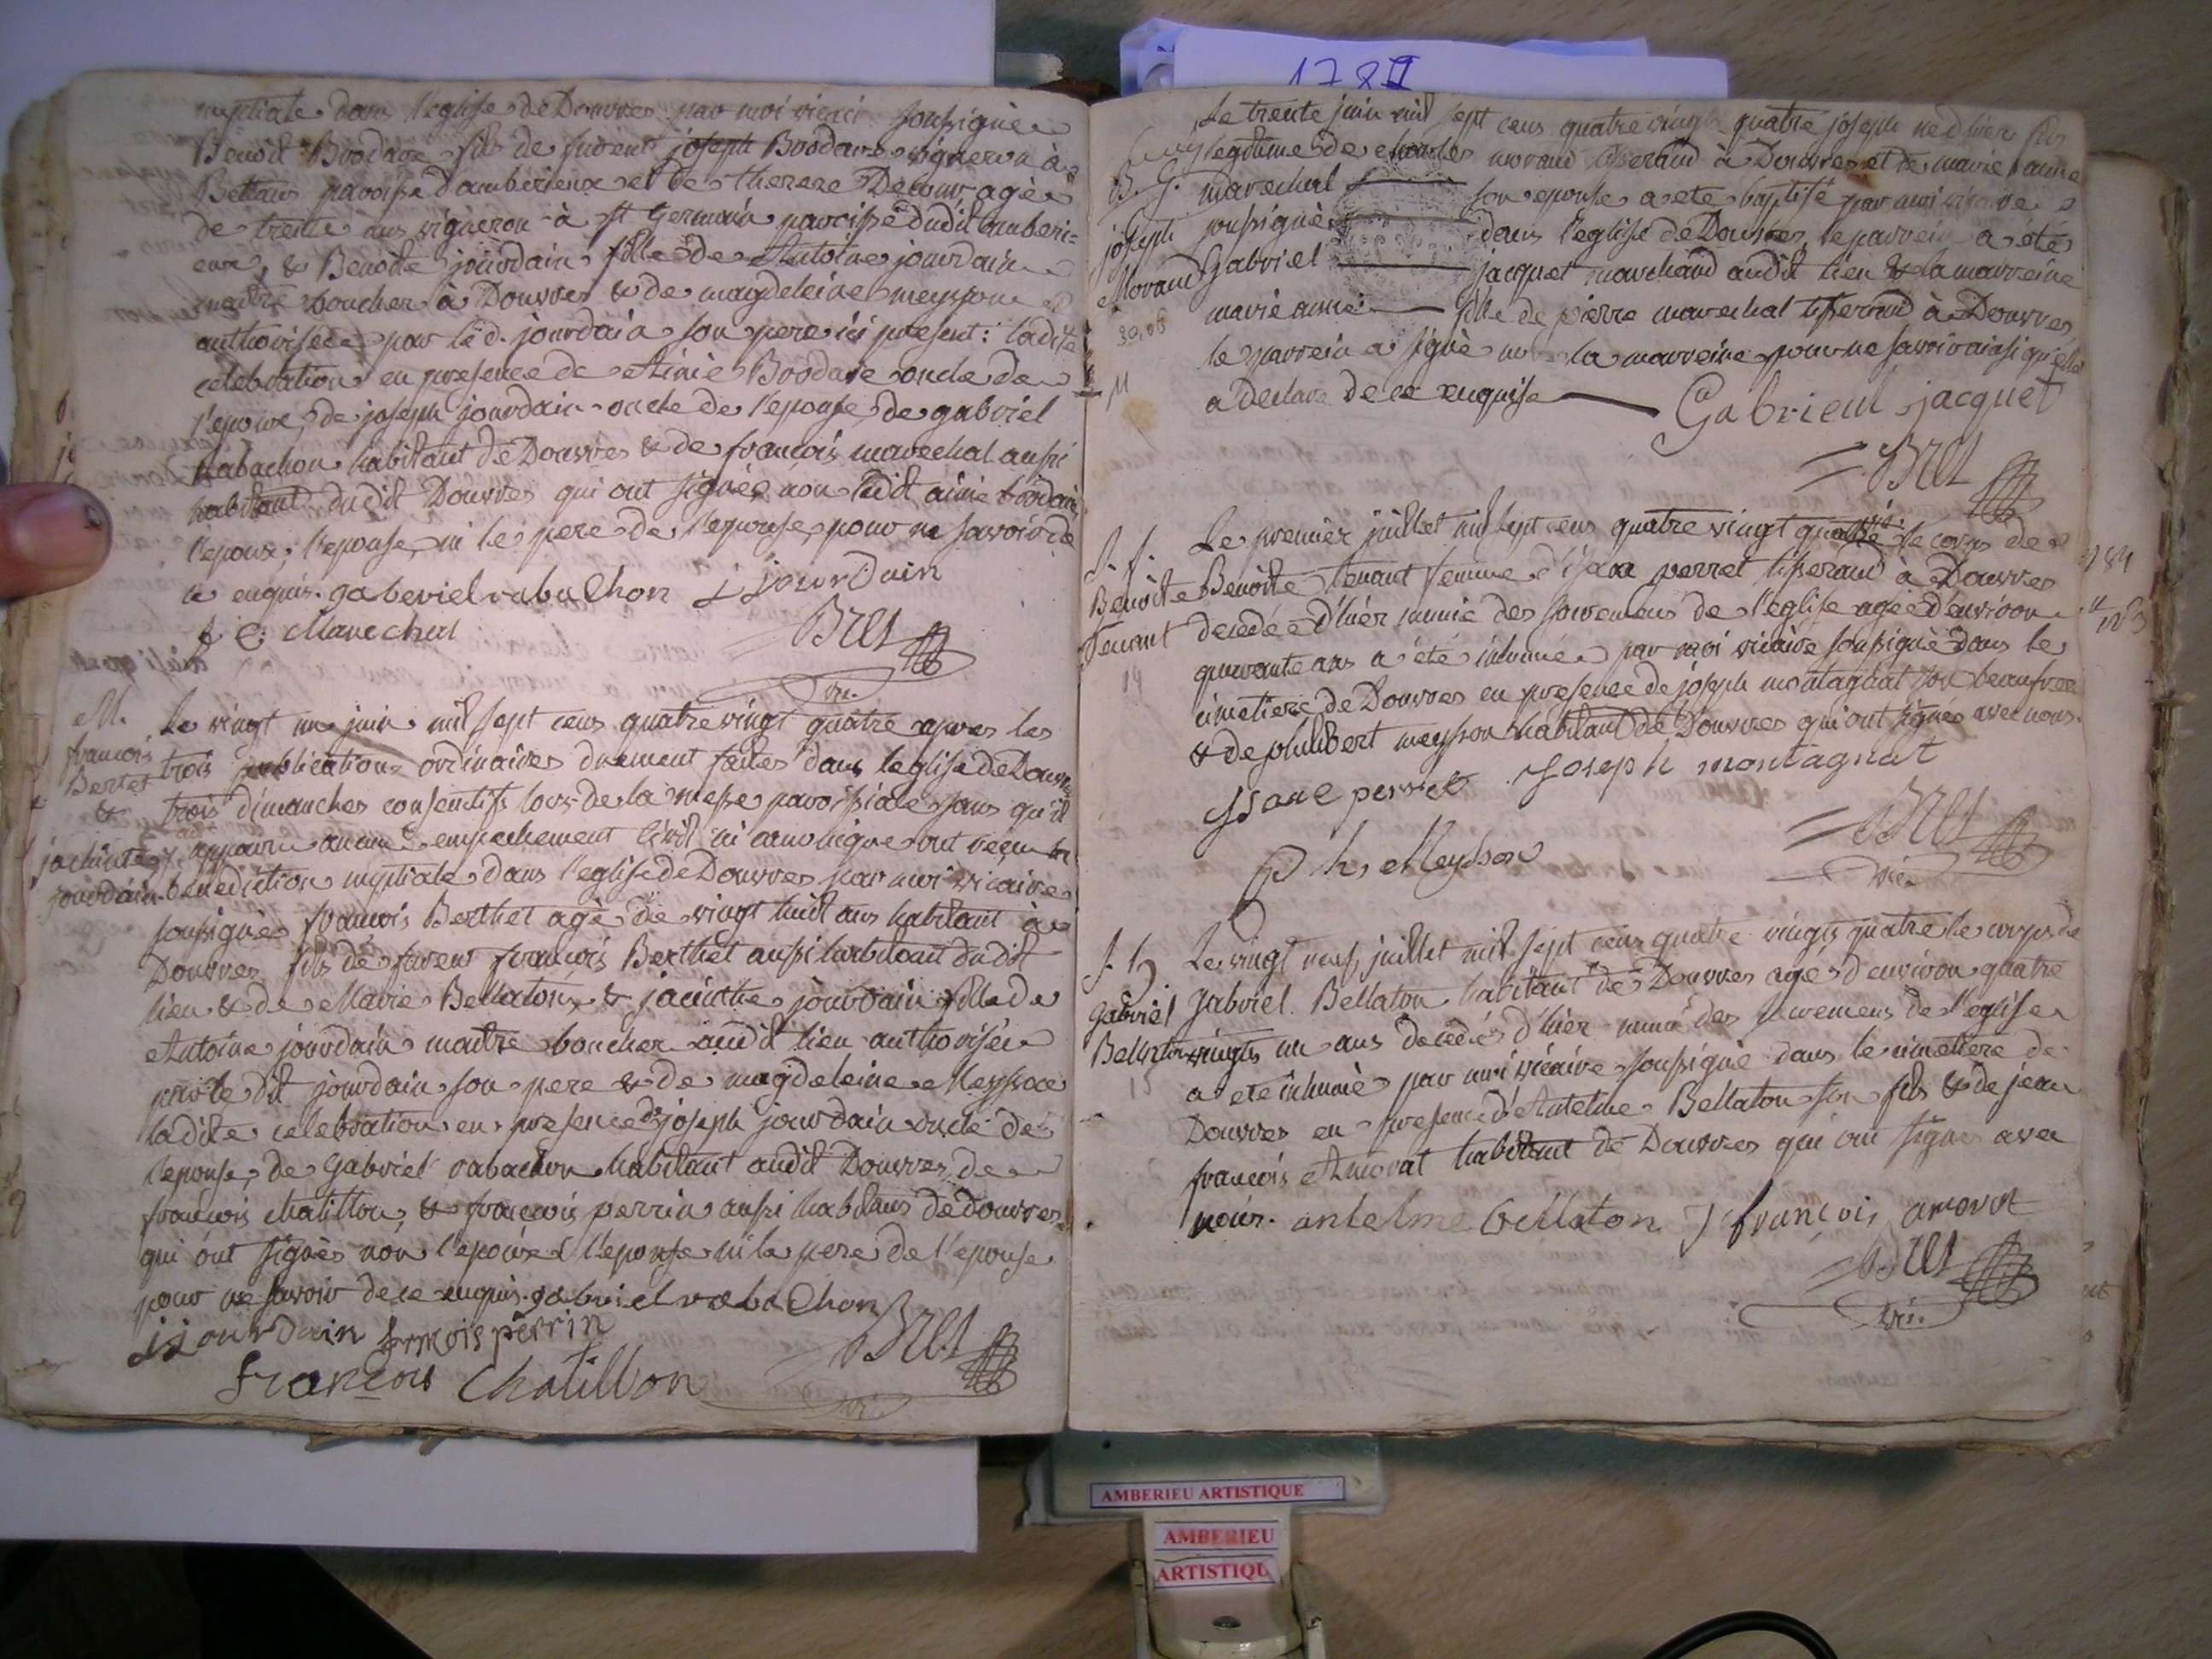 1784
nuptiale dans l'eglise de Douvres par moi vicai soussigné
Benoit Boodare fils de furent joseph Boodare vigneron à
Bettans paroisse d'amberieux et de therese agé
de trente ans vigneron à st Germain paroisse dudit amberi=
eux, & Benoite jourdain fille de Antoine jourdain
maitre boucher à Douvres & de magdeleine meysson
authorisée par le d. jourdain son pere ici present: ladite
celebration en presence de Aimé Boodare oncle de
l'epoux, de joseph jourdain oncle de l'epouse, de gabriel
Rabachon habitant de Douvres & de francois marechal aussi
habitant dudit Douvres qui ont signés non ledit aimé
l'epoux, l'epouse, ni le pere de l'epouse, pour ne savoir de
ce enquis. gaberiel rabachon j jourdain
f C. Marechal Bret
vic.
M.
francois
Bertet
&
jachinte
jourdain
Le vingt un juin mil sept cens quatre vingt quatre apres les
trois publications ordinaires duement faites dans leglise de Douvres
trois dimanches consecutifs lors de la messe paroissiale sans qu'il
y ait apparu aucun empechement civil ni canonique ont reçu la
benediction nuptiale dans l'eglise de Douvres par moi vicaire
soussigné francois Berthet agé de vingt huit ans habitant à
Douvres fils de furent francois Berthet aussi habitant dudit
lieu & de Marie Bellaton, & jacinthe jourdain fille de
Antoine jourdain maitre boucher audit lieu authorisée
par le dit jourdain son pere & de magdeleine Meysson
ladite celebration en presence de joseph jourdain oncle de
l'epouse, de Gabriel rabachon habitant audit Douvres, de
francois chatillon, & francois perrin aussi habitans de douvres
qui ont signés non l'epoux l'epouse ni le pere de l'epouse
pour ne savoir de ce enquis. gabriel rabachon
j jourdain francois perrin Bret
francois Chatillon
vic.
B. G.
joseph
Morand
30,06
Le trente juin mil sept cens quatre vingt quatre joseph né d'hier fils
legitime de charles morand tisserand à Douvres et de marie anne
marechal son epouse a eté baptisé par moi vicaire
soussigné dans l'eglise de Douvres, le parrein a été
Gabriel jacquet marchand audit lieu & la marreine
marie anne fille de pierre marechal tisserand à Douvres
le parrein a signé non la marreine pour ne savoir ainsi qu'elle
a declaré de ce enquise Gabrieul jacquet
Bret
S. f.
Benoite
Tenant
14
Le premier juillet mil sept cens quatre vingt quatre le corps de
Benoite Tenant femme d'isaac perret tisserand à Douvres
decedée d'hier munie des sacremens de l'eglise agée d'environ
quarante ans a été inhumée par moi vicaire soussigné dans le
cimetiere de Douvres en presence de joseph montagnat son beaufrere
& de philibert meysson habitant de Douvres qui ont signés avec nous.
Isaac perret Joseph montagnat
Bret
Ph. Meysson
vic.
S. h.
Gabriel
Bellaton
15
Le vingt neuf juillet mil sept cens quatre vingts quatre le corps de
gabriel Bellaton habitant de Douvres agé d'environ quatre
vingts un ans decedé d'hier muni des sacremens de l'eglise
a eté inhumé par moi vicaire soussigné dans le cimetiere de
Douvres en presence d'Antelme Bellaton son fils & de jean
francois Amorat habitant de Douvres qui ont signes avec
nous. antelme Bellaton J francois amorat
Bret
vic.
1784
AMBERIEU ARTISTIQUE
AMBERIEU
ARTISTIQU